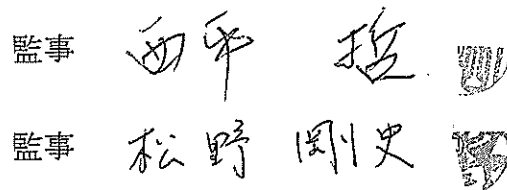 監事 西平 哲
監事 松野 剛史